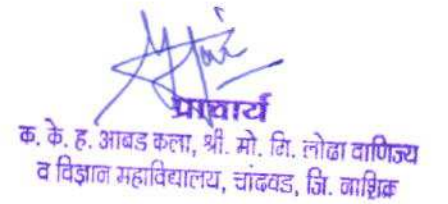 प्राचार्य
क. के. ह. आबड कला, श्री. मो. गि. लोढा वाणिज्य
व विज्ञान महाविद्यालय, चांदवड, जि. नाशिक